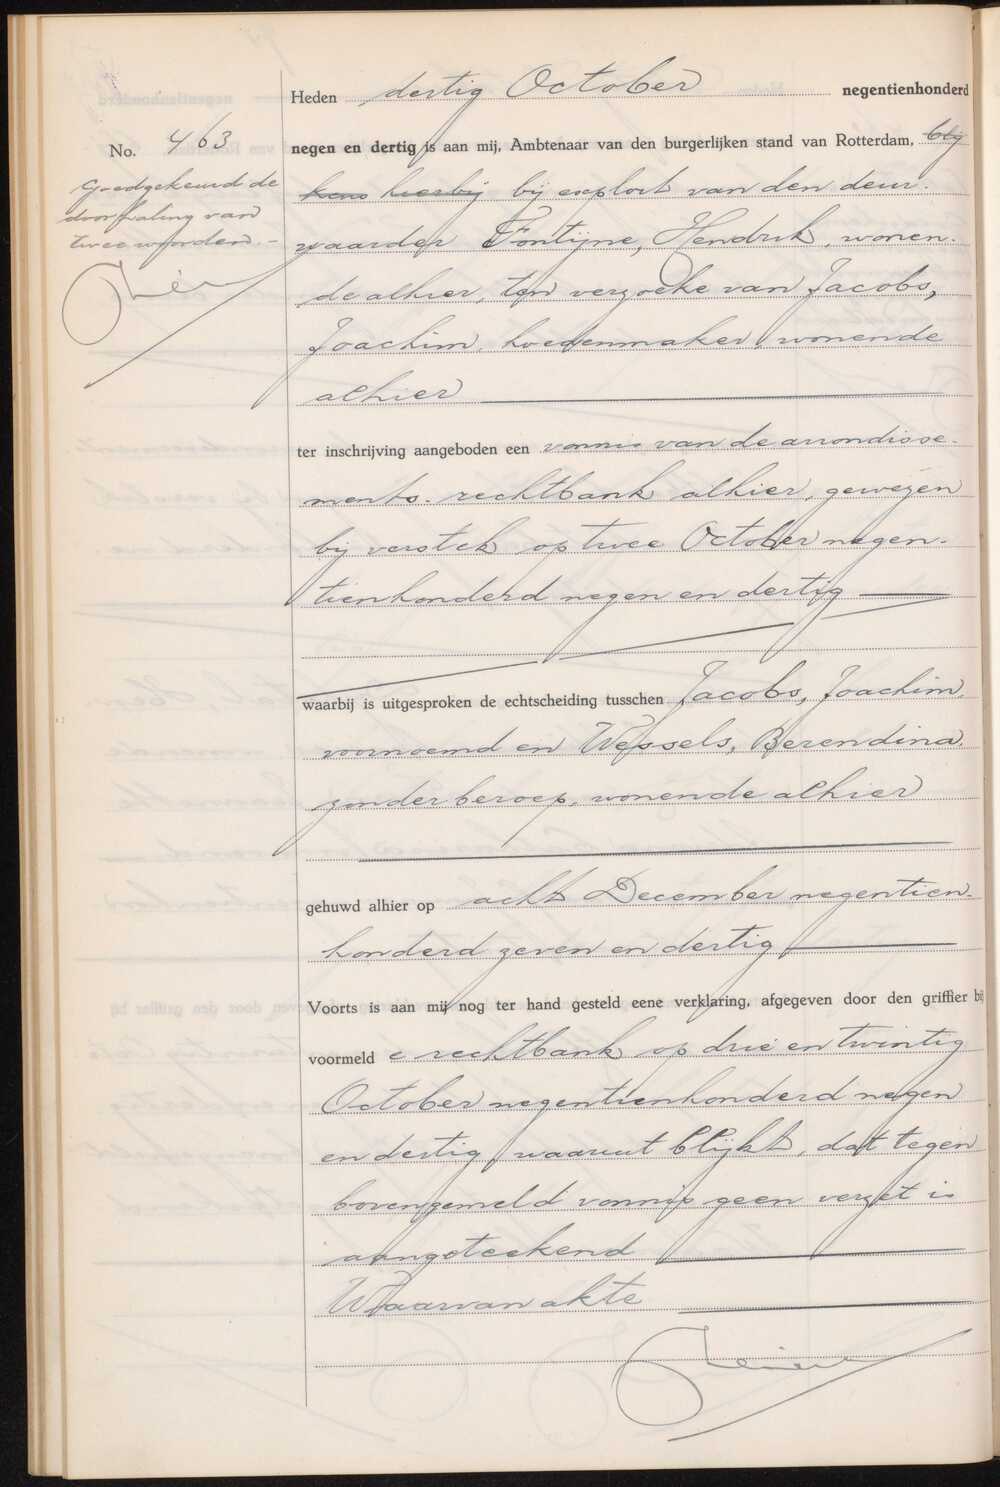 Heden dertig October negentienhonderd
No. 463
negen en dertig is aan mij, Ambtenaar van den burgerlijken stand van Rotterdam, blij
kens hierbij bij exploit van den deur-
Goedgekeurd de
doorhaling van
twee woorden. -
waarder Fontijne, Hendrik, wonen-
de alhier, ten verzoeke van Jacobs,
Joachim, hoedenmaker, wonende
alhier
ter inschrijving aangeboden een vonnis van de arrondisse-
ments-rechtbank alhier, gewezen
bij verstek op twee October negen-
tienhonderd negen en dertig
waarbij is uitgesproken de echtscheiding tusschen Jacobs, Joachim,
voornoemd en Wessels, Berendina,
zonder beroep, wonende alhier
gehuwd alhier op acht December negentien-
honderd zeven en dertig
Voorts is aan mij nog ter hand gesteld eene verklaring, afgegeven door den griffier bij
voormelde rechtbank op drie en twintig
October negentienhonderd negen
en dertig waaruit blijkt, dat tegen
bovengemeld vonnis geen verzet is
aangeteekend
Waarvan akte